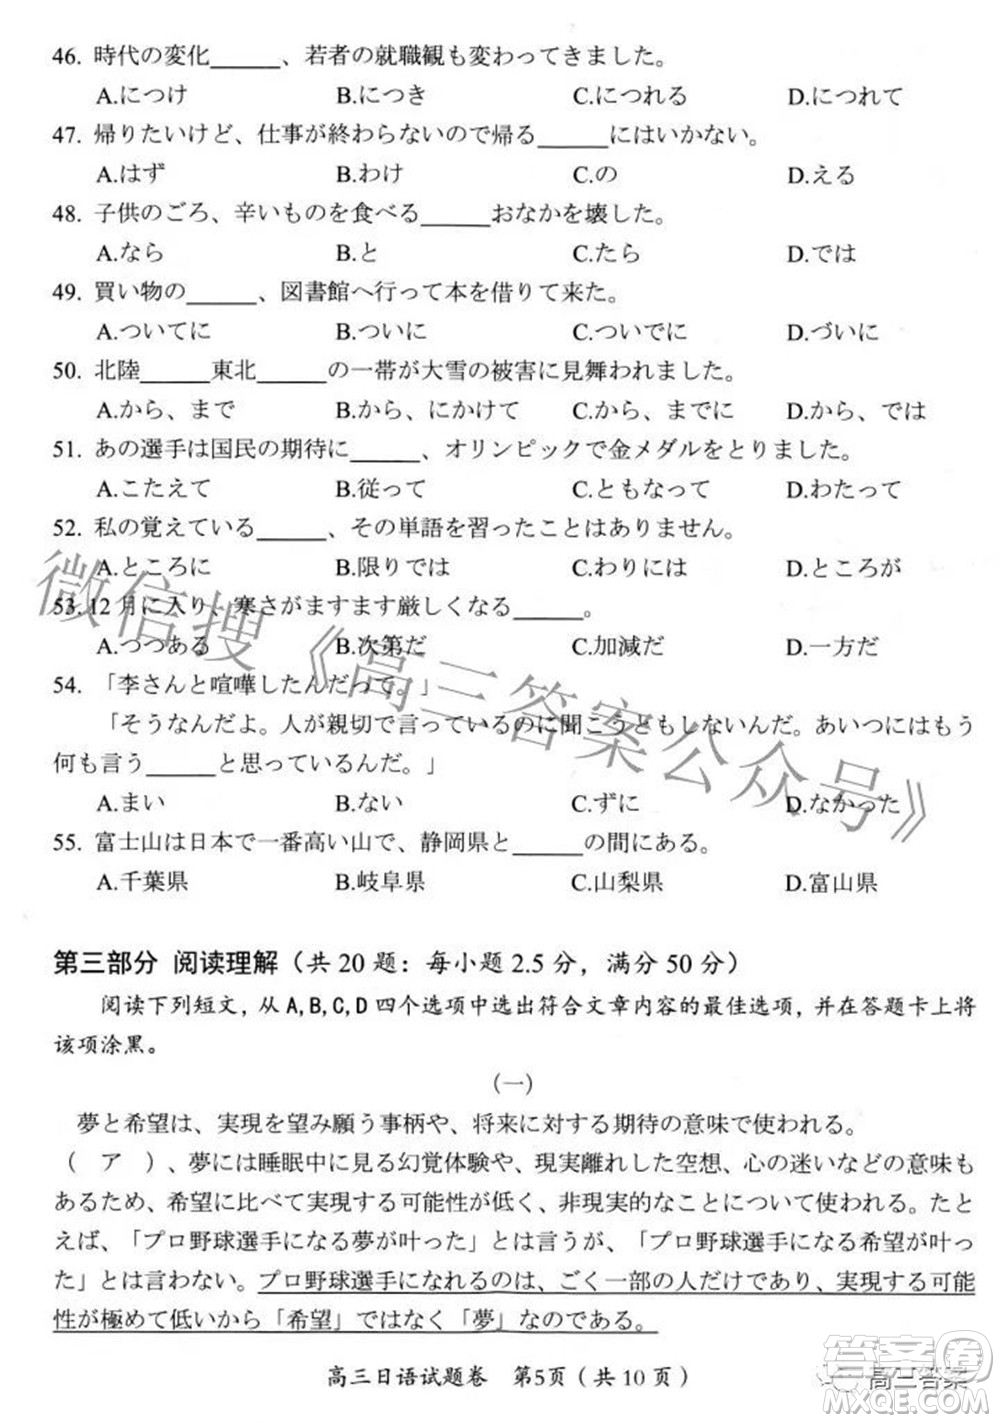 46. 時代の変化______、若者の就職観も変わってきました。
A.につけ B.につき C.につれる D.につれて
47. 帰りたいけど、仕事が終わらないので帰る______にはいかない。
A.はず B.わけ C.の D.える
48. 子供のごろ、辛いものを食べる______おなかを壊した。
A.なら B.と C.たら D.では
49. 買い物の______、図書館へ行って本を借りて来た。
A.ついてに B.ついに C.ついでに D.づいに
50. 北陸______東北______の一帯が大雪の被害に見舞われました。
A.から、まで B.から、にかけて C.から、までに D.から、では
51. あの選手は国民の期待に______、オリンピックで金メダルをとりました。
A.こたえて B.従って C.ともなって D.わたって
52. 私の覚えている______、その単語を習ったことはありません。
A.ところに B.限りでは C.わりには D.ところが
53. 12月に入り、寒さがますます厳しくなる______。
A.つつある B.次第だ C.加減だ D.一方だ
54. 「李さんと喧嘩したんだって。」
「そうなんだよ。人が親切で言っているのに聞こうともしないんだ。あいつにはもう
何も言う______と思っているんだ。」
A.まい B.ない C.ずに D.なかった
55. 富士山は日本で一番高い山で、静岡県と______の間にある。
A.千葉県 B.岐阜県 C.山梨県 D.富山県
第三部分 阅读理解（共 20 题：每小题 2.5 分，满分 50 分）
阅读下列短文，从 A,B,C,D 四个选项中选出符合文章内容的最佳选项，并在答题卡上将
该项涂黑。
（一）
夢と希望は、実現を望み願う事柄や、将来に対する期待の意味で使われる。
（ ア ）、夢には睡眠中に見る幻覚体験や、現実離れした空想、心の迷いなどの意味も
あるため、希望に比べて実現する可能性が低く、非現実的なことについて使われる。たと
えば、「プロ野球選手になる夢が叶った」とは言うが、「プロ野球選手になる希望が叶っ
た」とは言わない。プロ野球選手になれるのは、ごく一部の人だけであり、実現する可能
性が極めて低いから「希望」ではなく「夢」なのである。
高三日语试题卷 第5页（共 10 页）
微信搜《高三答案公众号》
答案圈
高三答案
MXQE.COM